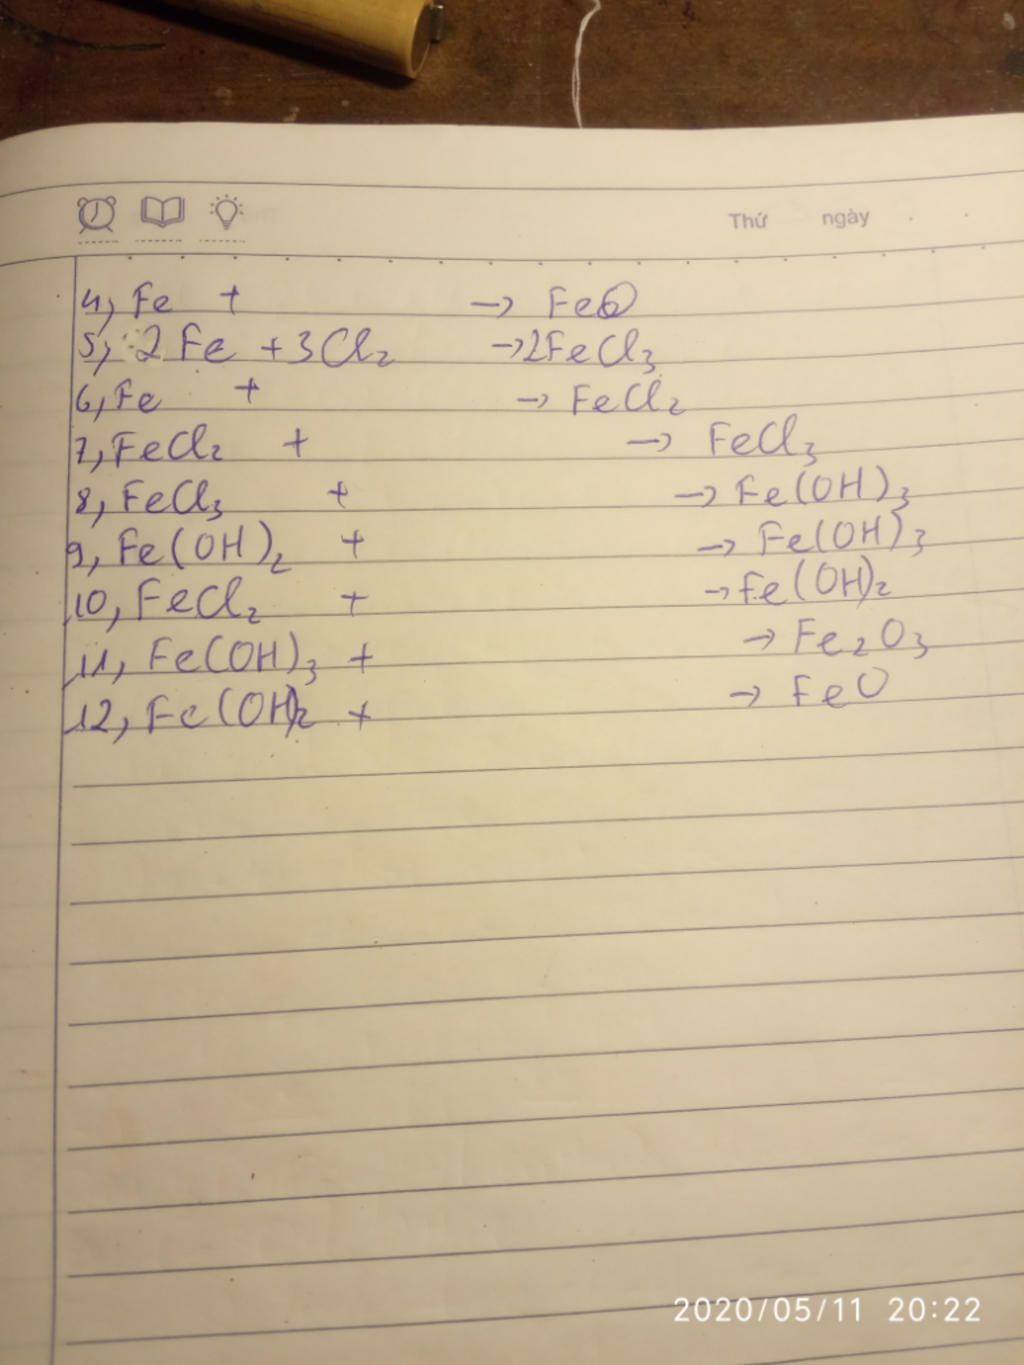 Thứ ngày
4, Fe + → FeO
5, 2Fe + 3Cl₂ → 2FeCl₃
6, Fe + → FeCl₂
7, FeCl₂ + → FeCl₃
8, FeCl₃ + → Fe(OH)₃
9, Fe(OH)₂ + → Fe(OH)₃
10, FeCl₂ + → Fe(OH)₂
11, Fe(OH)₃ + → Fe₂O₃
12, Fe(OH)₂ + → FeO
2020/05/11 20:22